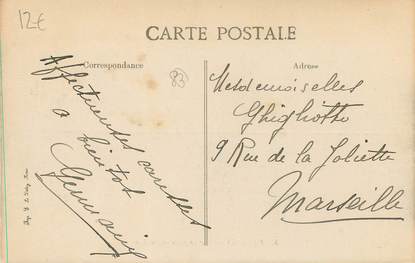 12€
CARTE POSTALE
Correspondance
Adresse
83
Affectueuses caresses
a bientot
Germaine
Mesdemoiselles
Ghighotto
9 Rue de la Joliette
Marseille